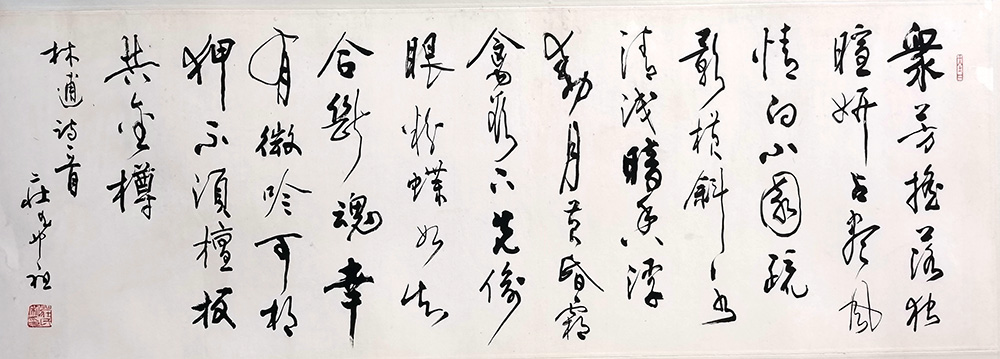 衆芳摇落独
暄妍占尽風
情向小園疏
影横斜水
清浅暗香浮
動月黄昏霜
禽欲下先偷
眼粉蝶如知
合斷魂幸
有微吟可相
狎不須檀板
共金樽
林逋诗一首